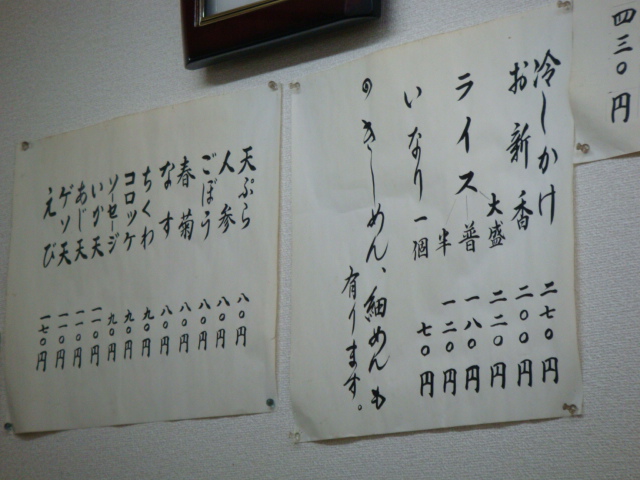 四三〇円
冷しかけ 二七〇円
お新香 二〇〇円
ライス 大盛 二二〇円
普 一八〇円
半 一二〇円
いなり 一個 七〇円
のきしめん、細めんも
有ります。
天ぷら 八〇円
人参 八〇円
ごぼう 八〇円
春菊 八〇円
なす 八〇円
ちくわ 九〇円
コロッケ 九〇円
ソーセージ 九〇円
いか天 一一〇円
あじ天 一一〇円
ゲソ天 一一〇円
えび 一七〇円